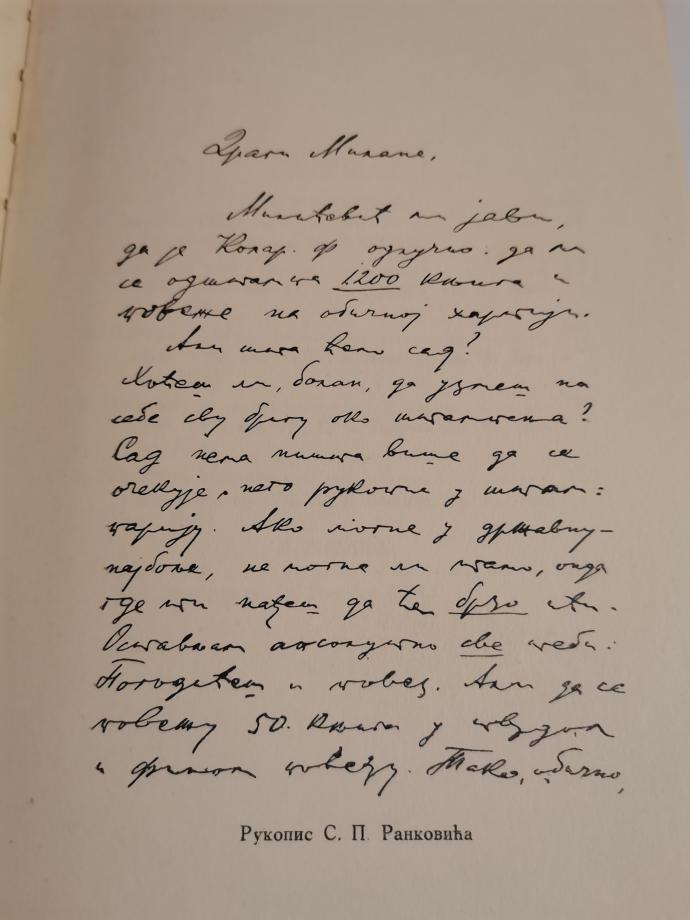 Драги Милане,
Милићевић ми јави,
да је Колар. ф одлучио. да ми
се одштампа 1200 књига и
повеже на обичној хартији.
Али шта ћемо сад?
Хоћеш ли, болан, да узмеш на
себе сву бригу око штампања?
Сад нема ништа више да се
очекује, него рукопис у штам:
парију. Ако може у државну—
најбоље, не може ли тамо, онда
где ти нађеш да ће брзо ићи.
Остављам апсолутно све теби.
Погодићеш и повез. Али да се
повежу 50. књига у тврдом
и фином повезу. Тако, обично,
Рукопис С. П. Ранковића